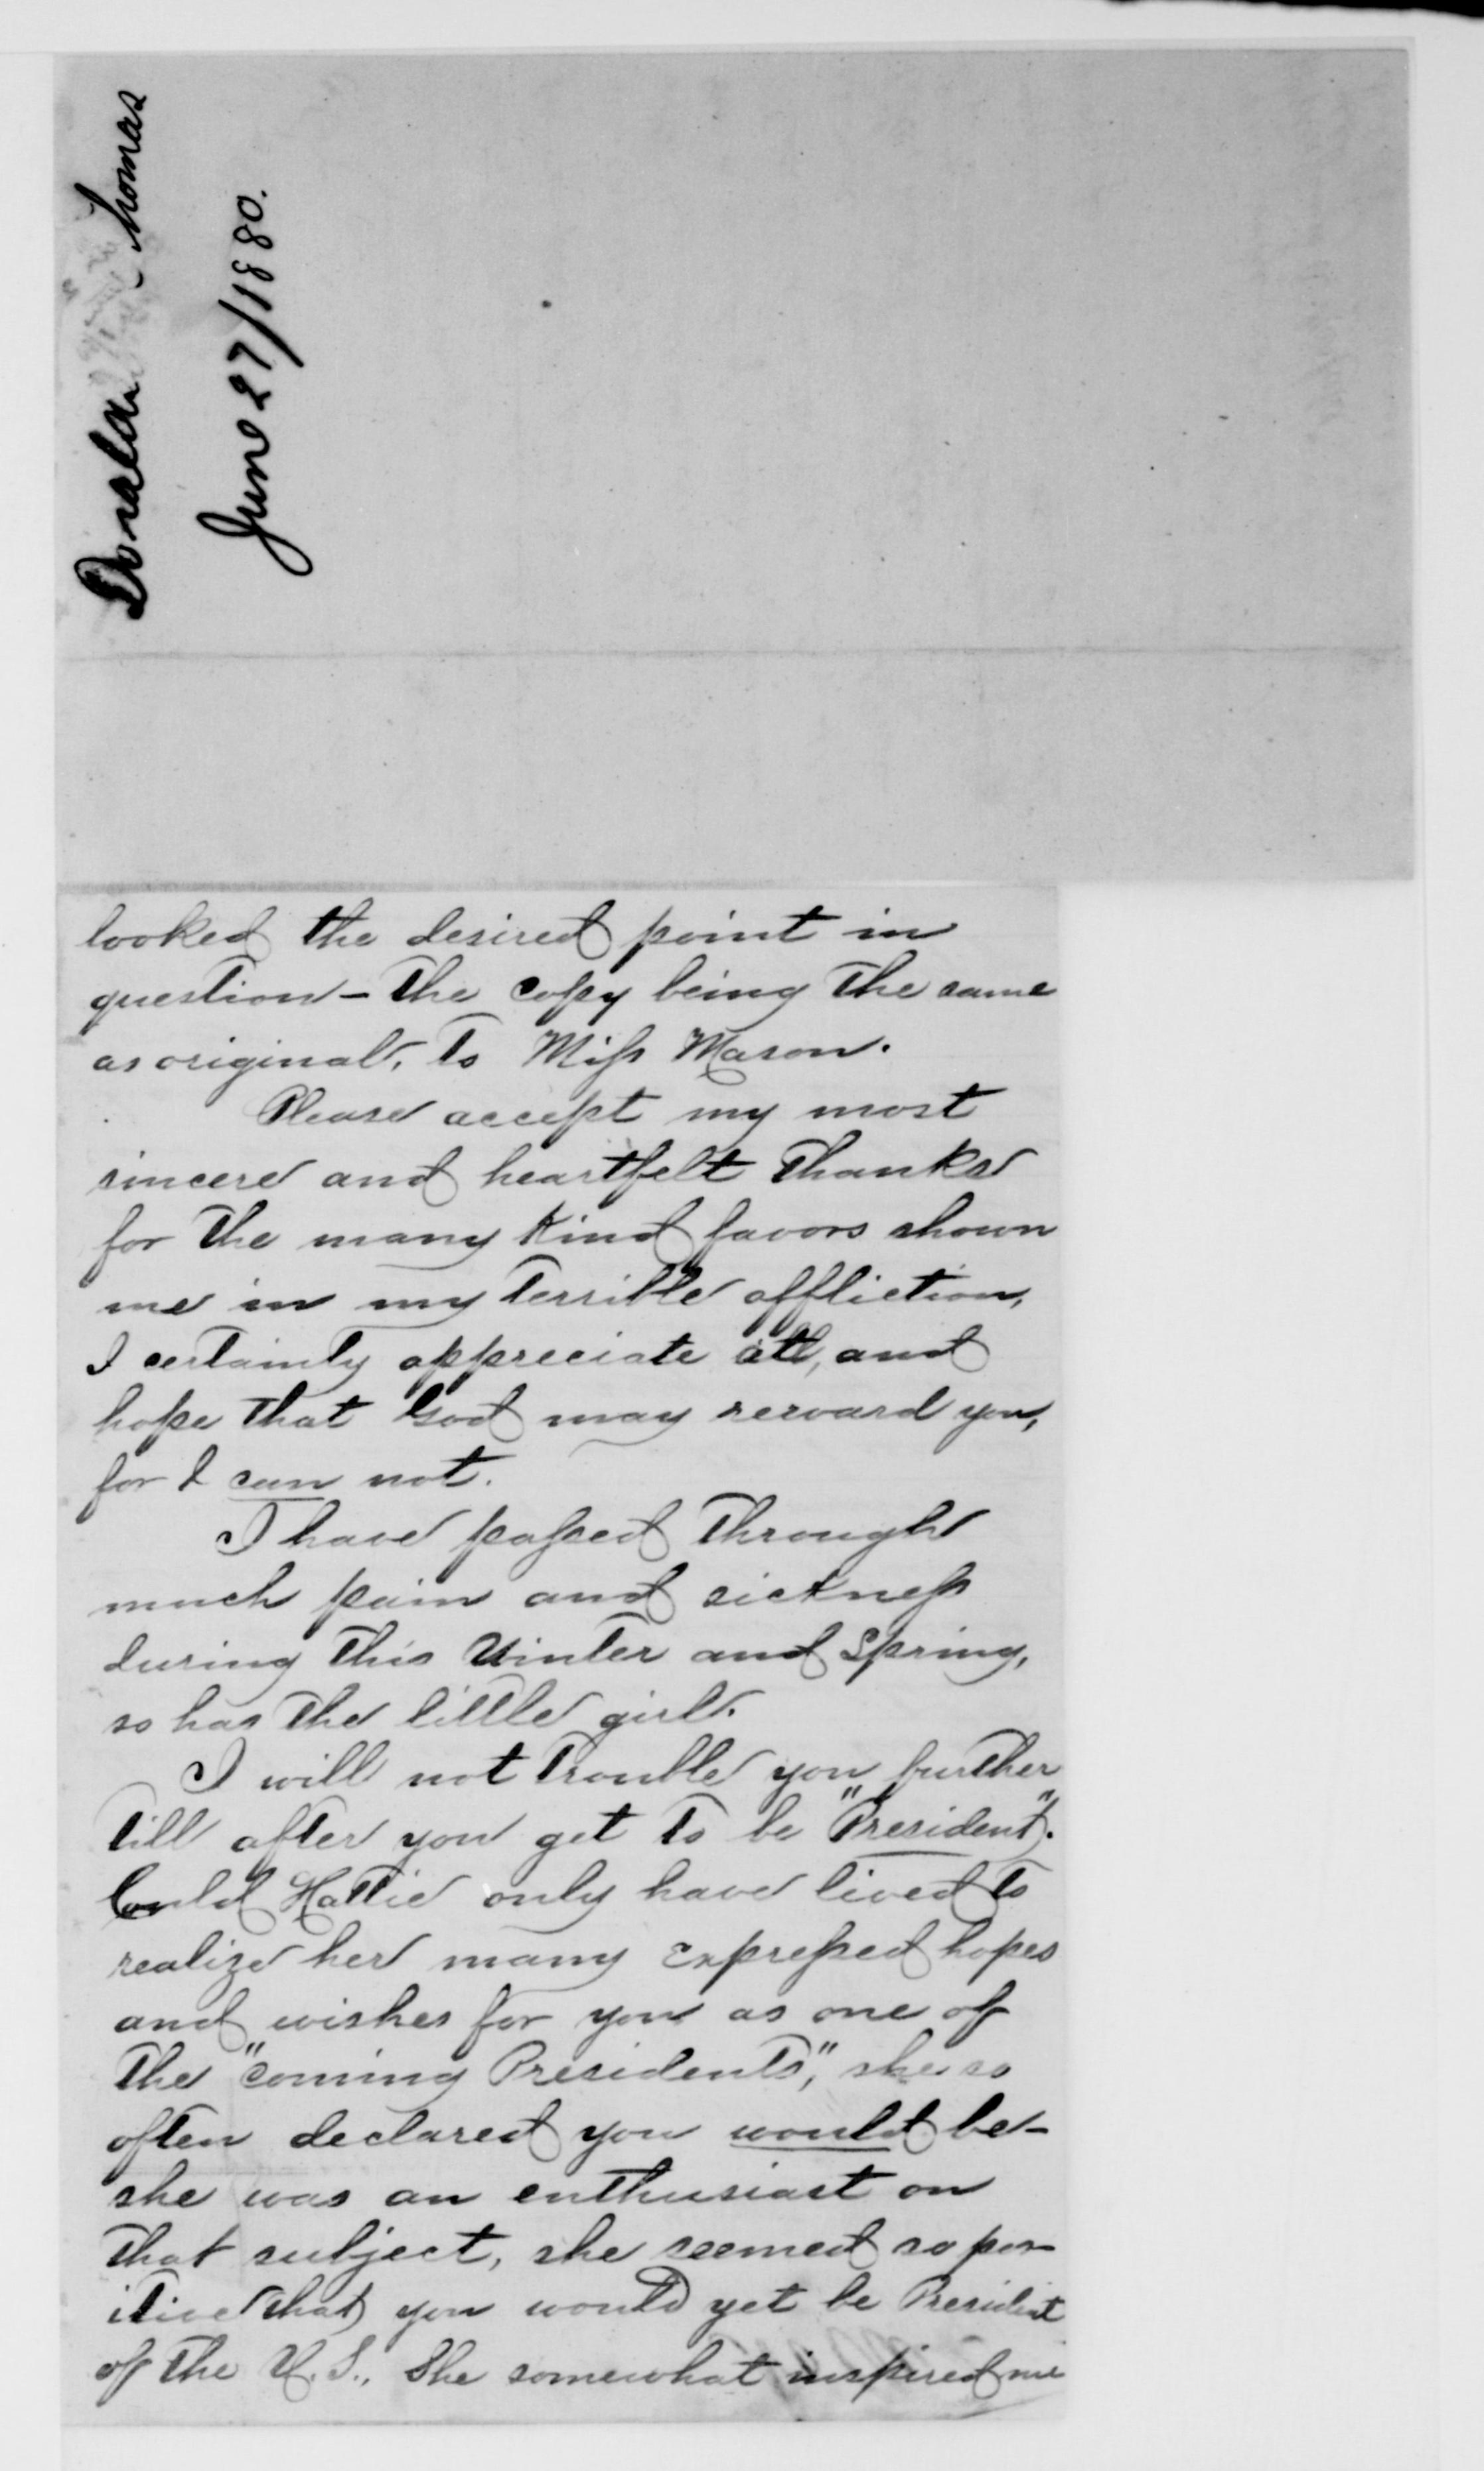 Donaldson Thomas
June 27/1880.
looked the desired point in
question - the copy being the same
as original, to Miss Mason.
Please accept my most
sincere and heartfelt thanks
for the many kind favors shown
me in my terrible affliction,
I certainly appreciate all, and
hope that God may reward you,
for I can not.
I have passed through
much pain and sickness
during this Winter and Spring,
so has the little girl.
I will not trouble you further
till after you get to be "President".
Could Hattie only have lived to
realize her many expressed hopes
and wishes for you as one of
the "coming Presidents", she so
often declared you would be -
she was an enthusiast on
that subject, she seemed so pos-
itive that you would yet be President
of the U.S., She somewhat inspired me